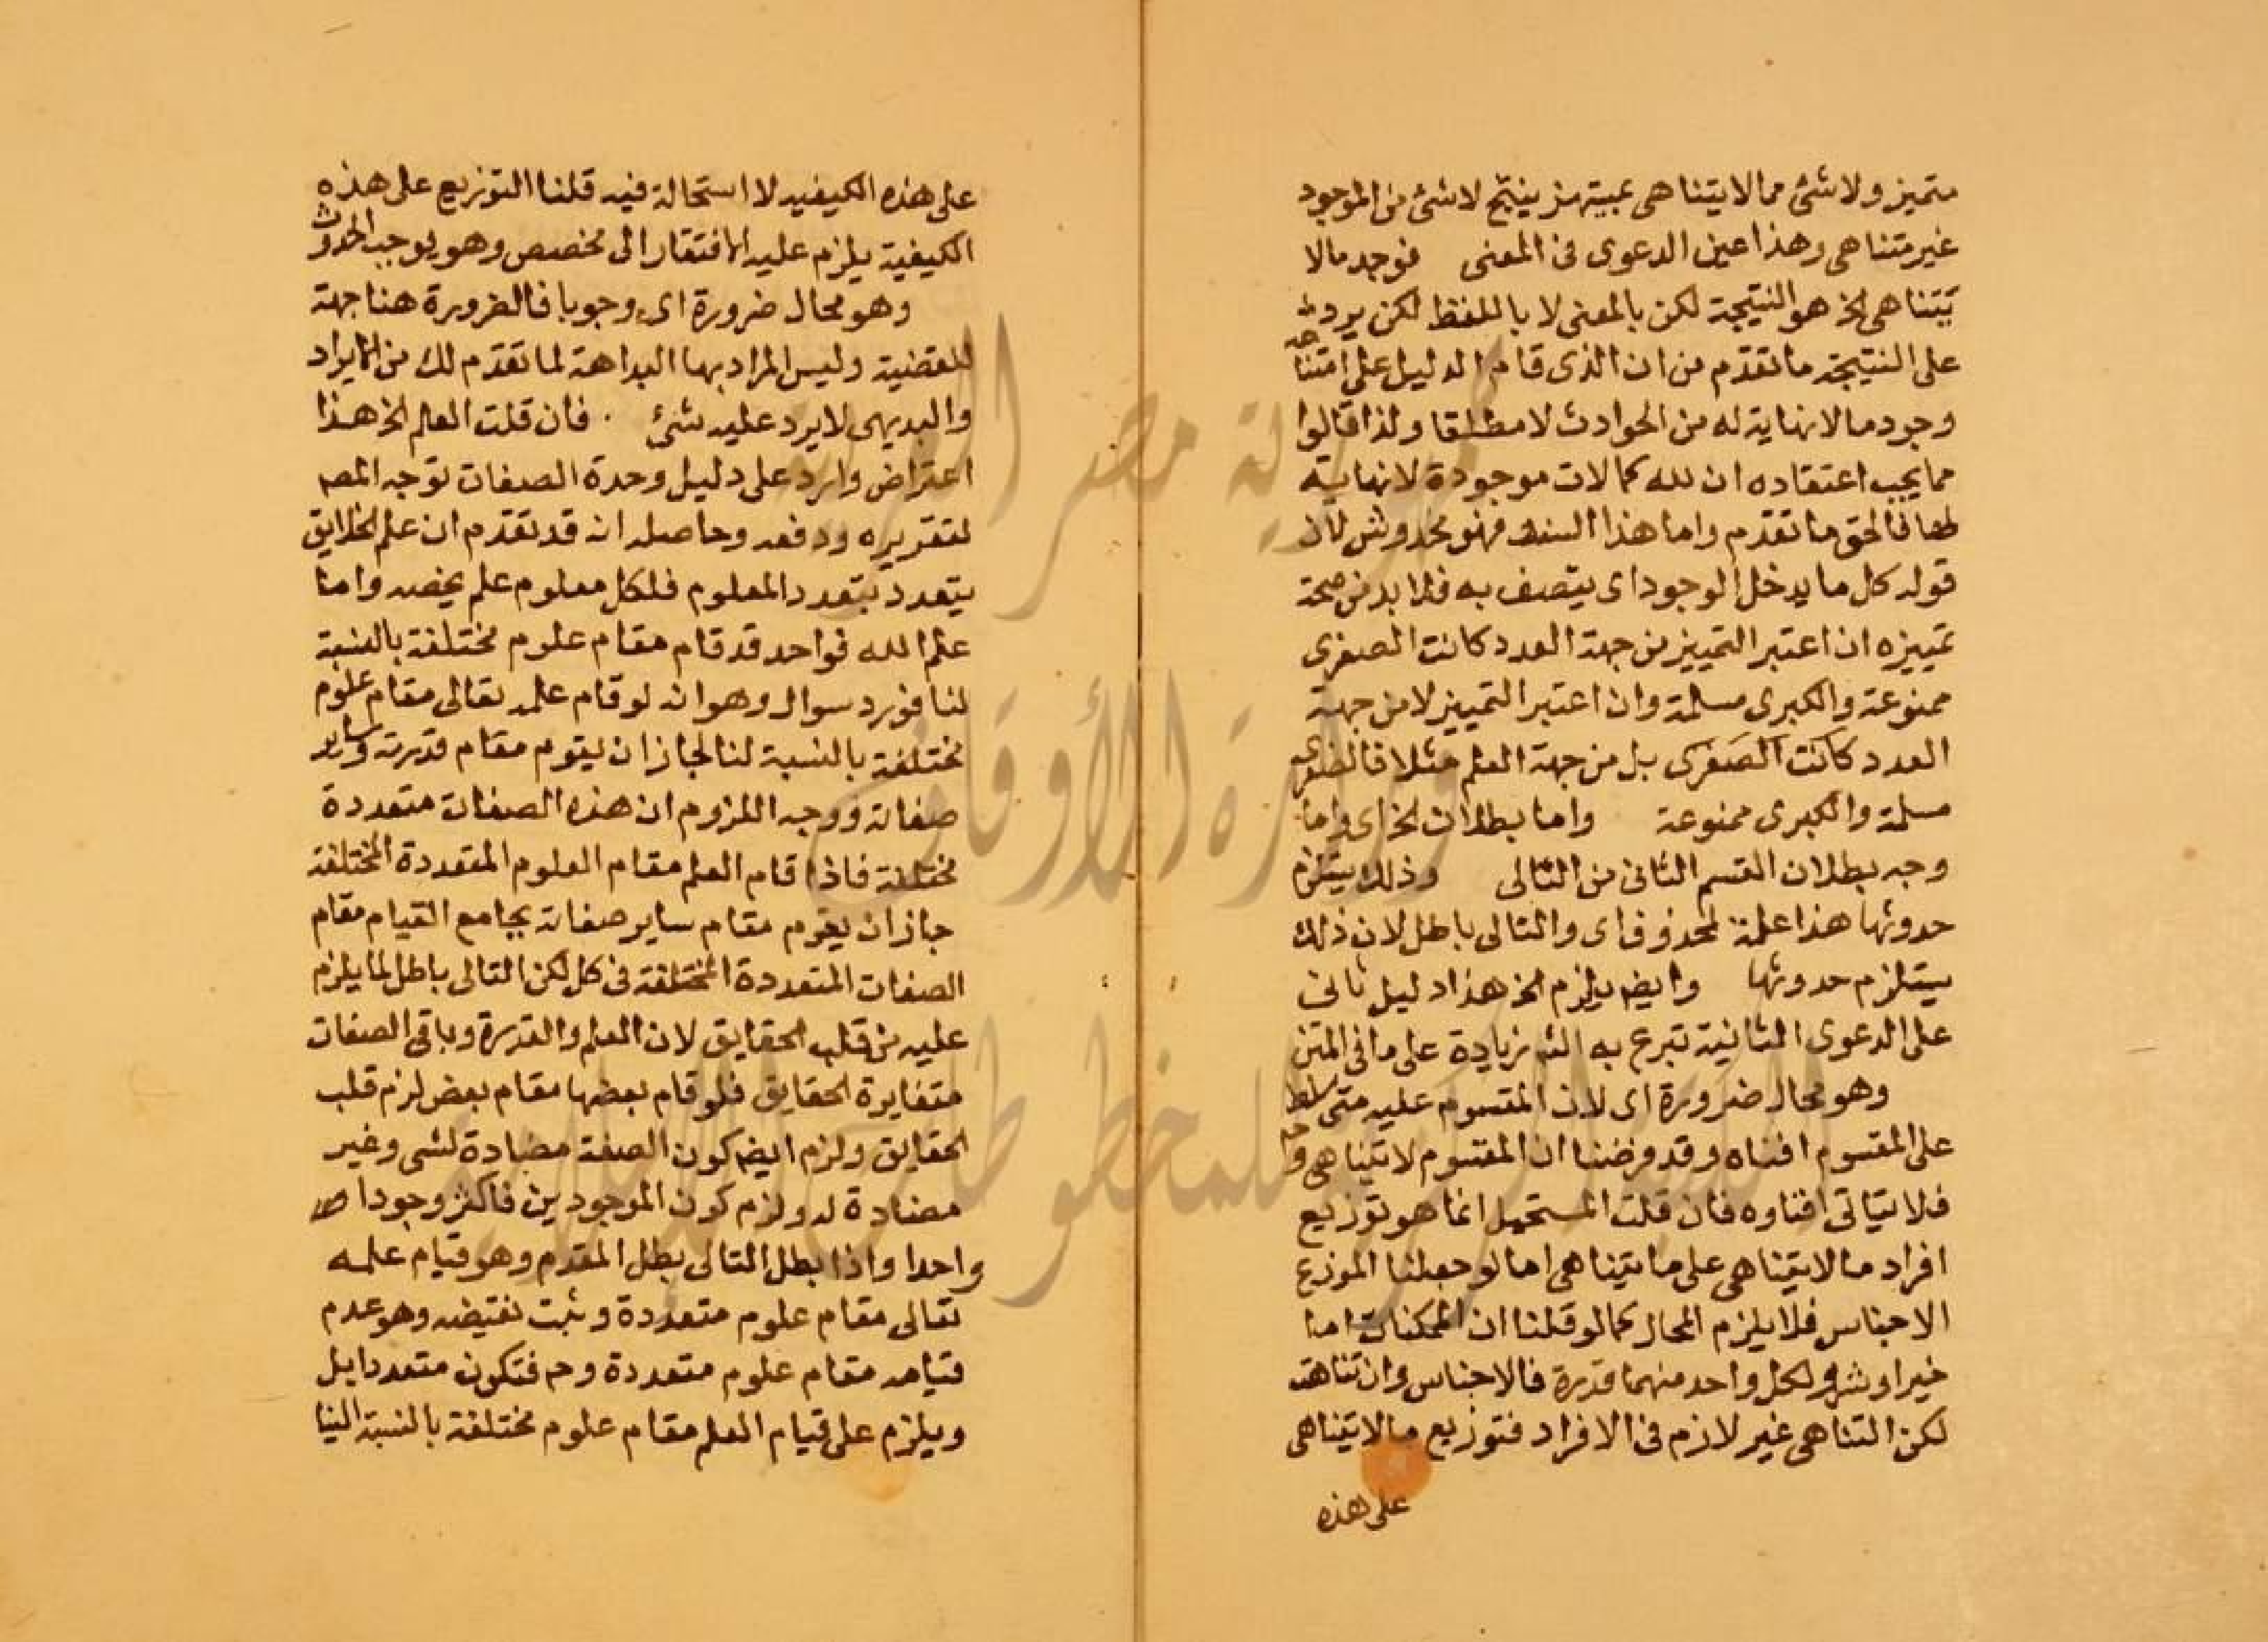 متميز ولا شئ مما لا يتناهى بمتميز ينتج لا شئ من الموجود
غير متناهى وهذا عين الدعوى فى المعنى فوجد مالا
يتناهى الخ هو النتيجة لكن بالمعنى لا باللفظ لكن يرد
على النتيجة ما تقدم من ان الذى قام الدليل على امتناع
وجود مالا نهاية له من الحوادث لا مطلقا ولذا قالوا
مما يجب اعتقاده ان لله كمالات موجودة لا نهاية
لها فالحق ما تقدم واما هذا السند فهو مخدوش لان
قوله كل ما يدخل الوجود اى يتصف به فلا بد من صحة
تمييزه ان اعتبر التمييز من جهة العدد كانت الصغرى
ممنوعة والكبرى مسلمة وان اعتبر التمييز لا من جهة
العدد كانت الصغرى بل من جهة العلم مثلا فالصغرى
مسلمة والكبرى ممنوعة واما بطلان الخ اى واما
وجه بطلان القسم الثانى من التالى وذلك يستلزم
حدوثها هذا علة لمحذوف اى والتالى باطل لان ذلك
يستلزم حدوثها وايضا يلزم الخ هذا دليل ثانى
على الدعوى الثانية تبرع به الش زيادة على ما فى المتن
وهو محال ضرورة اى لان المقسوم عليه متى سلط
على المقسوم افناه وقد فرضنا ان المقسوم لا يتناهى وح
فلا يتاتى افناوه فان قلت المستحيل انما هو توزيع
افراد مالا يتناهى على ما يتناهى اما لو جعلنا الموزع
الاجناس فلا يلزم المحال كما لو قلنا ان الممكنات اما
خير او شر ولكل واحد منهما قدرة فالاجناس وان تناهت
لكن التناهى غير لازم فى الافراد فتوزيع مالا يتناهى
على هذه
على هذه الكيفيه لا استحالة فيه قلنا التوزيع على هذه
الكيفية يلزم عليه الافتقار الى مخصص وهو يوجب الحدوث
وهو محال ضرورة اى وجوبا فالضرورة هنا جهة
للقضية وليس المراد بها البداهة لما تقدم لك من الايراد
والبديهى لا يرد عليه شئ . فان قلت العلم الخ هذا
اعتراض وارد على دليل وحدة الصفات توجه المص
لتقريره ودفعه وحاصله انه قد تقدم ان علم الخلايق
يتعدد بتعدد المعلوم فلكل معلوم علم يخصه واما
علم الله فواحد قد قام مقام علوم مختلفة بالنسبة
لنا فورد سوال وهو انه لو قام علمه تعالى مقام علوم
مختلفة بالنسبة لنا لجاز ان يقوم مقام قدرته وساير
صفاته ووجه اللزوم ان هذه الصفات متعددة
مختلفة فاذا قام العلم مقام العلوم المتعددة المختلفة
جاز ان يقوم مقام ساير صفاته بجامع القيام مقام
الصفات المتعددة المختلفة فى كل لكن التالى باطل لما يلزم
عليه من قلب الحقايق لان العلم والقدرة وباقى الصفات
متغايرة الحقايق فلو قام بعضها مقام بعض لزم قلب
الحقايق ولزم ايضا كون الصفة مضادة لشى وغير
مضادة له ولزم كون الموجودين فاكثر وجودا
واحدا واذا بطل التالى بطل المقدم وهو قيام علمه
تعالى مقام علوم متعددة وثبت نقيضه وهو عدم
قيامه مقام علوم متعددة وح فتكون متعددا بل
ويلزم على قيام العلم مقام علوم مختلفة بالنسبة الينا